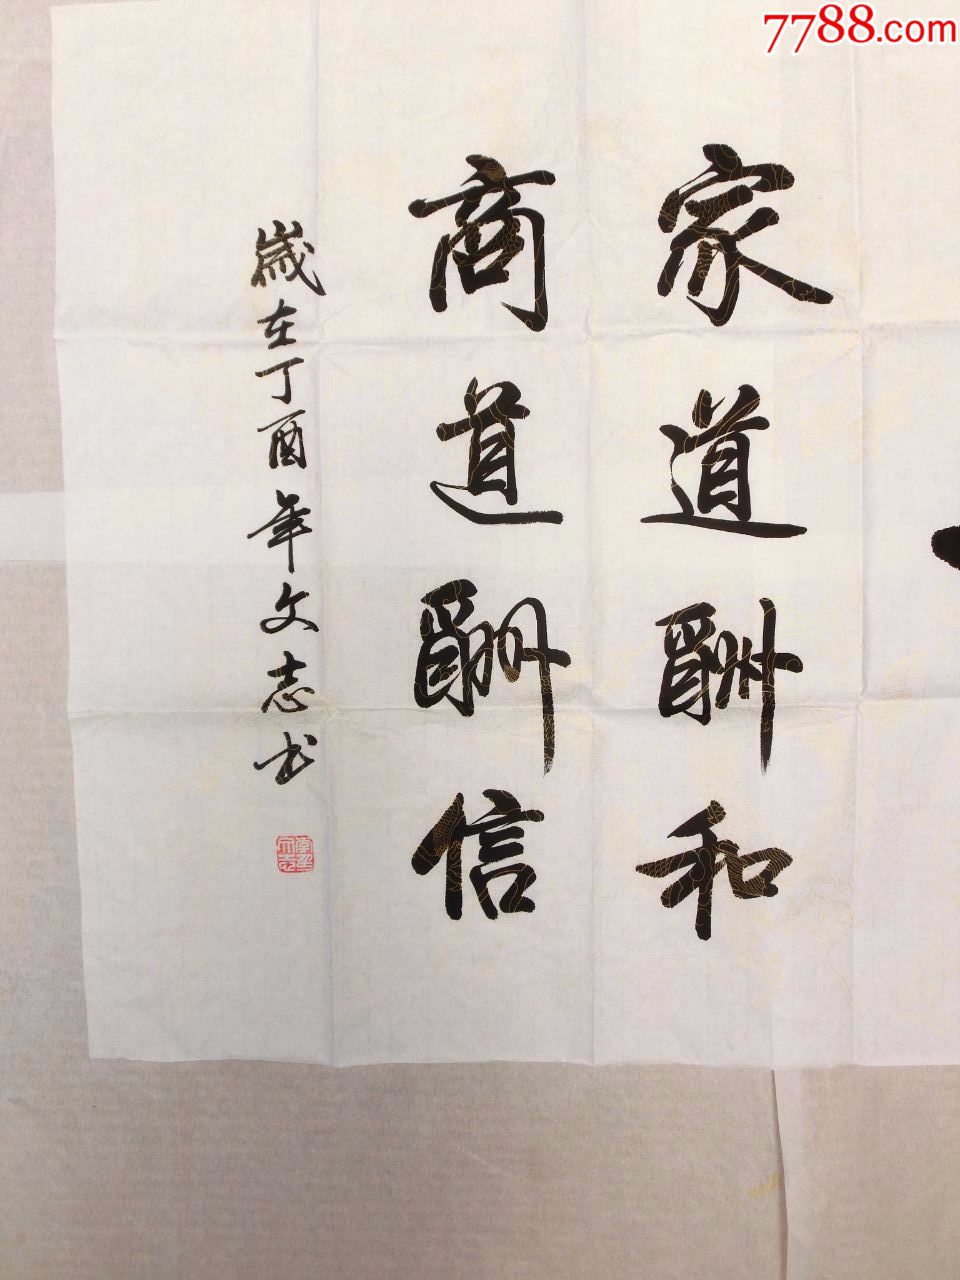 7788.com
家道酬和
商道酬信
歲在丁酉年文志书